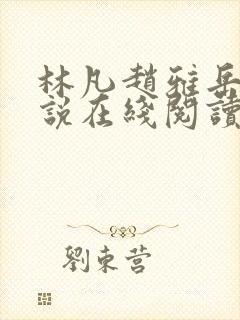 林凡趙雅岳
說在綫閱讀
劉東營